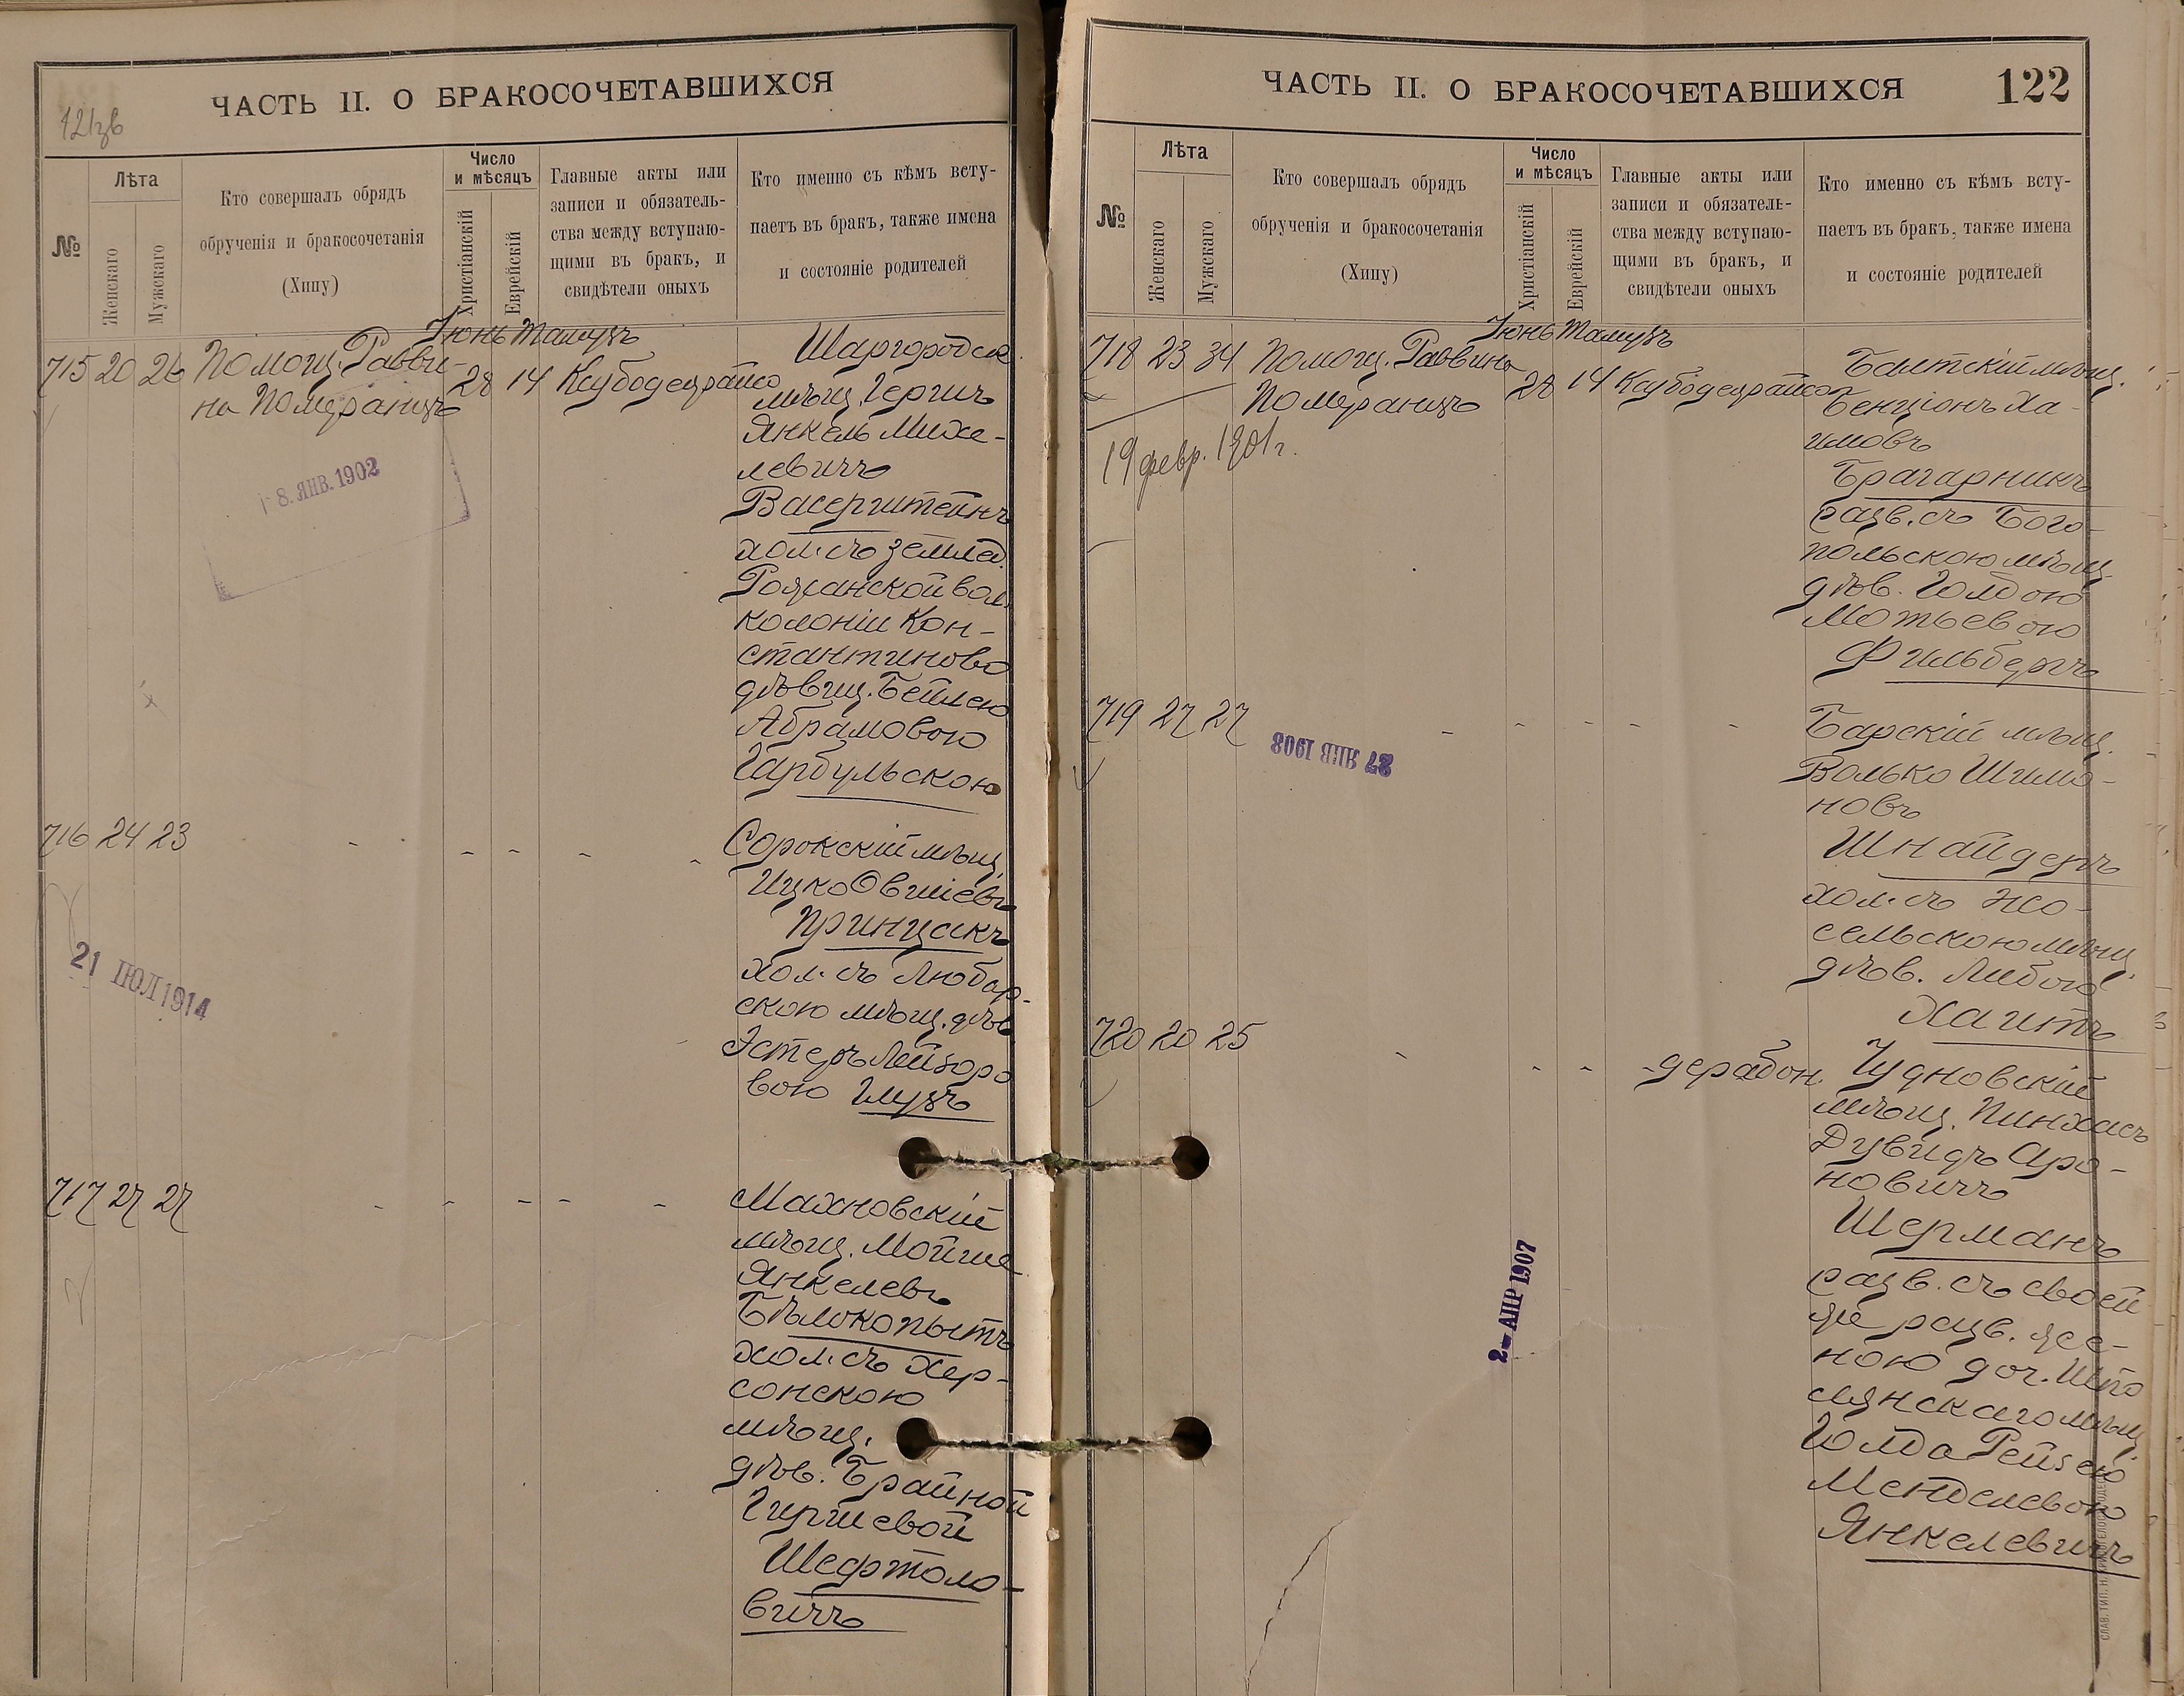 121зв
ЧАСТЬ II. О БРАКОСОЧЕТАВШИХСЯ
№
Лѣта
Женскаго
Мужскаго
Кто совершалъ обрядъ
обрученія и бракосочетанія
(Хипу)
Число
и мѣсяцъ
Христіанскій
Еврейскій
Главные акты или
записи и обязатель-
ства между вступаю-
щими въ бракъ, и
свидѣтели оныхъ
Кто именно съ кѣмъ всту-
паетъ въ бракъ, также имена
и состояніе родителей
Іюнь Тамузъ
715 20 26 Помощ. Равви-
на Померанцъ
28 14 Ксубодецрайсо
Шаргородск.
мѣщ. Гершъ
Янкель Михе-
левичъ
Васерштейнъ
хол. съ землед.
колоніи Кон-
стантиново
дѣвиц. Бейлею
Абрамовою
Гарбульскою
8. ЯНВ. 1902
716 24 23 - - - - -
Сорокскій мѣщ.
Ицко Овшіевъ
Принцакъ
хол. съ Любар-
скою мѣщ. дѣв.
Эстеръ Лейзоро
вою Глузъ
21 ІЮЛ 1914
717 27 27 - - - - -
Махновскій
мѣщ. Мойше
Янкелевъ
Бѣлокопытъ
хол. съ Хер-
сонскою
мѣщ.
дѣв. Брайной
Гиршевой
Шефтело-
вичъ
ЧАСТЬ II. О БРАКОСОЧЕТАВШИХСЯ
122
№
Лѣта
Женскаго
Мужскаго
Кто совершалъ обрядъ
обрученія и бракосочетанія
(Хипу)
Число
и мѣсяцъ
Христіанскій
Еврейскій
Главные акты или
записи и обязатель-
ства между вступаю-
щими въ бракъ, и
свидѣтели оныхъ
Кто именно съ кѣмъ всту-
паетъ въ бракъ, также имена
и состояніе родителей
Іюнь Тамузъ
718 23 34 Помощ. Раввина
Померанцъ
28 14 Ксубодецрайсо
19 февр. 1901 г.
Балтскій мѣщ.
Бенціонъ Ха-
имовъ
Брагарникъ
разв. съ Бого-
польскою мѣщ.
дѣв. Голдою
Мотьевою
Фильберъ
719 27 27 - - - - -
27 ЯНВ 1908
Барскій мѣщ.
Волько Шимо-
новъ
Шнайдеръ
хол. съ Но-
сельскою мѣщ.
дѣв. Любою
Хаитъ
720 20 25 - - - - дерабон.
Чудновскій
мѣщ. Пинхасъ
Дувидъ Аро-
новичъ
Шерманъ
разв. съ своей
же разв. же-
ною доч. Шпо
лянскаго мѣщ.
Голда Рейзею
Менделевою
Янкелевичъ
2 - АПР 1907